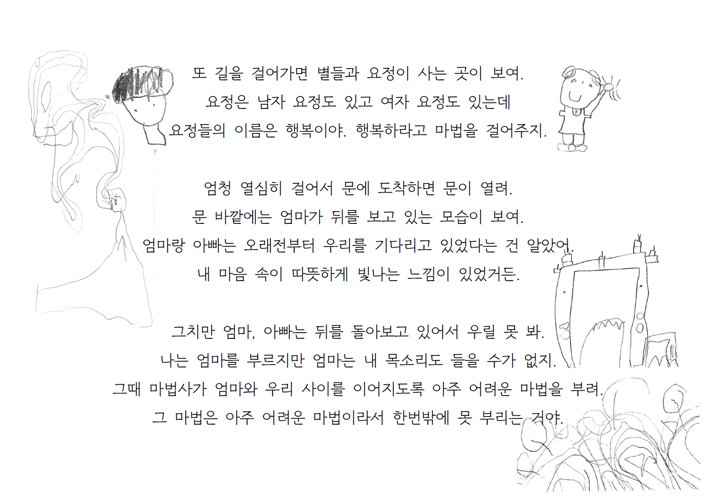 또 길을 걸어가면 별들과 요정이 사는 곳이 보여.
요정은 남자 요정도 있고 여자 요정도 있는데
요정들의 이름은 행복이야. 행복하라고 마법을 걸어주지.
엄청 열심히 걸어서 문에 도착하면 문이 열려.
문 바깥에는 엄마가 뒤를 보고 있는 모습이 보여.
엄마랑 아빠는 오래전부터 우리를 기다리고 있었다는 건 알았어.
내 마음 속이 따뜻하게 빛나는 느낌이 있었거든.
그치만 엄마, 아빠는 뒤를 돌아보고 있어서 우릴 못 봐.
나는 엄마를 부르지만 엄마는 내 목소리도 들을 수가 없지.
그때 마법사가 엄마와 우리 사이를 이어지도록 아주 어려운 마법을 부려.
그 마법은 아주 어려운 마법이라서 한번밖에 못 부리는 거야.